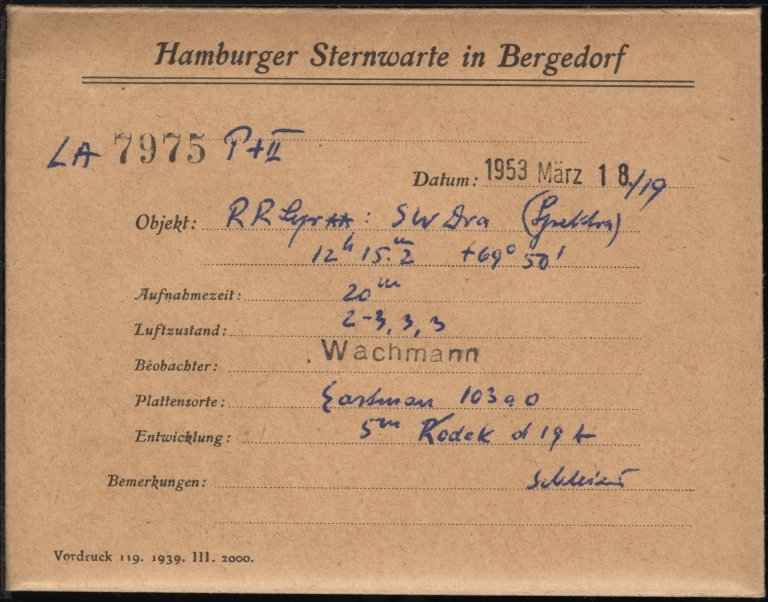 Hamburger Sternwarte in Bergedorf
LA 7975 P+II
Datum: 1953 März 18./19
Objekt: RR Lyrae: SW Dra (Spektra)
12h 15.m2 +69° 50'
Aufnahmezeit: 20m
Luftzustand: 2-3, 3, 3
Beobachter: Wachmann
Plattensorte: Eastman 103a0
Entwicklung: 5m Kodak d 19
Bemerkungen:
Vordruck 119. 1939. III. 2000.